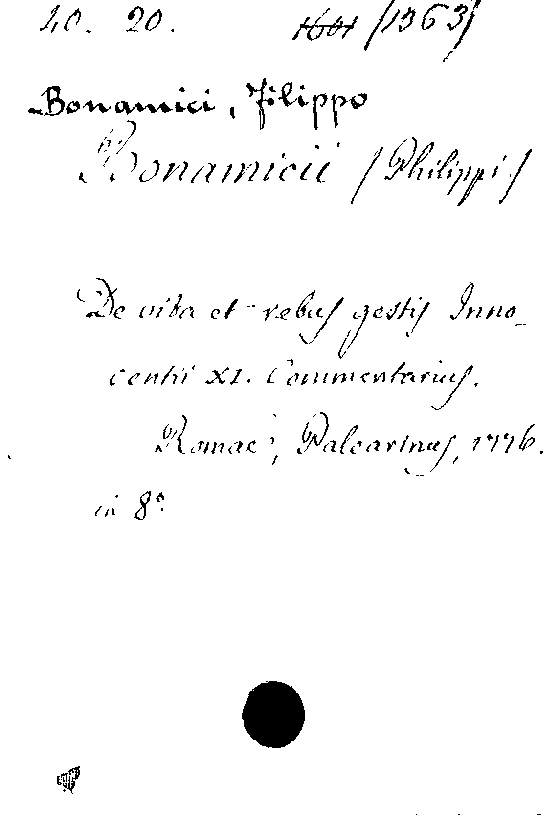 40. 20. 1601 (1363)
Bonamici, Filippo
Bonamicii (Philippi)
De vita et rebus gestis Inno-
centii XI. Commentarius.
Romae, Palearinus, 1776.
in 8°